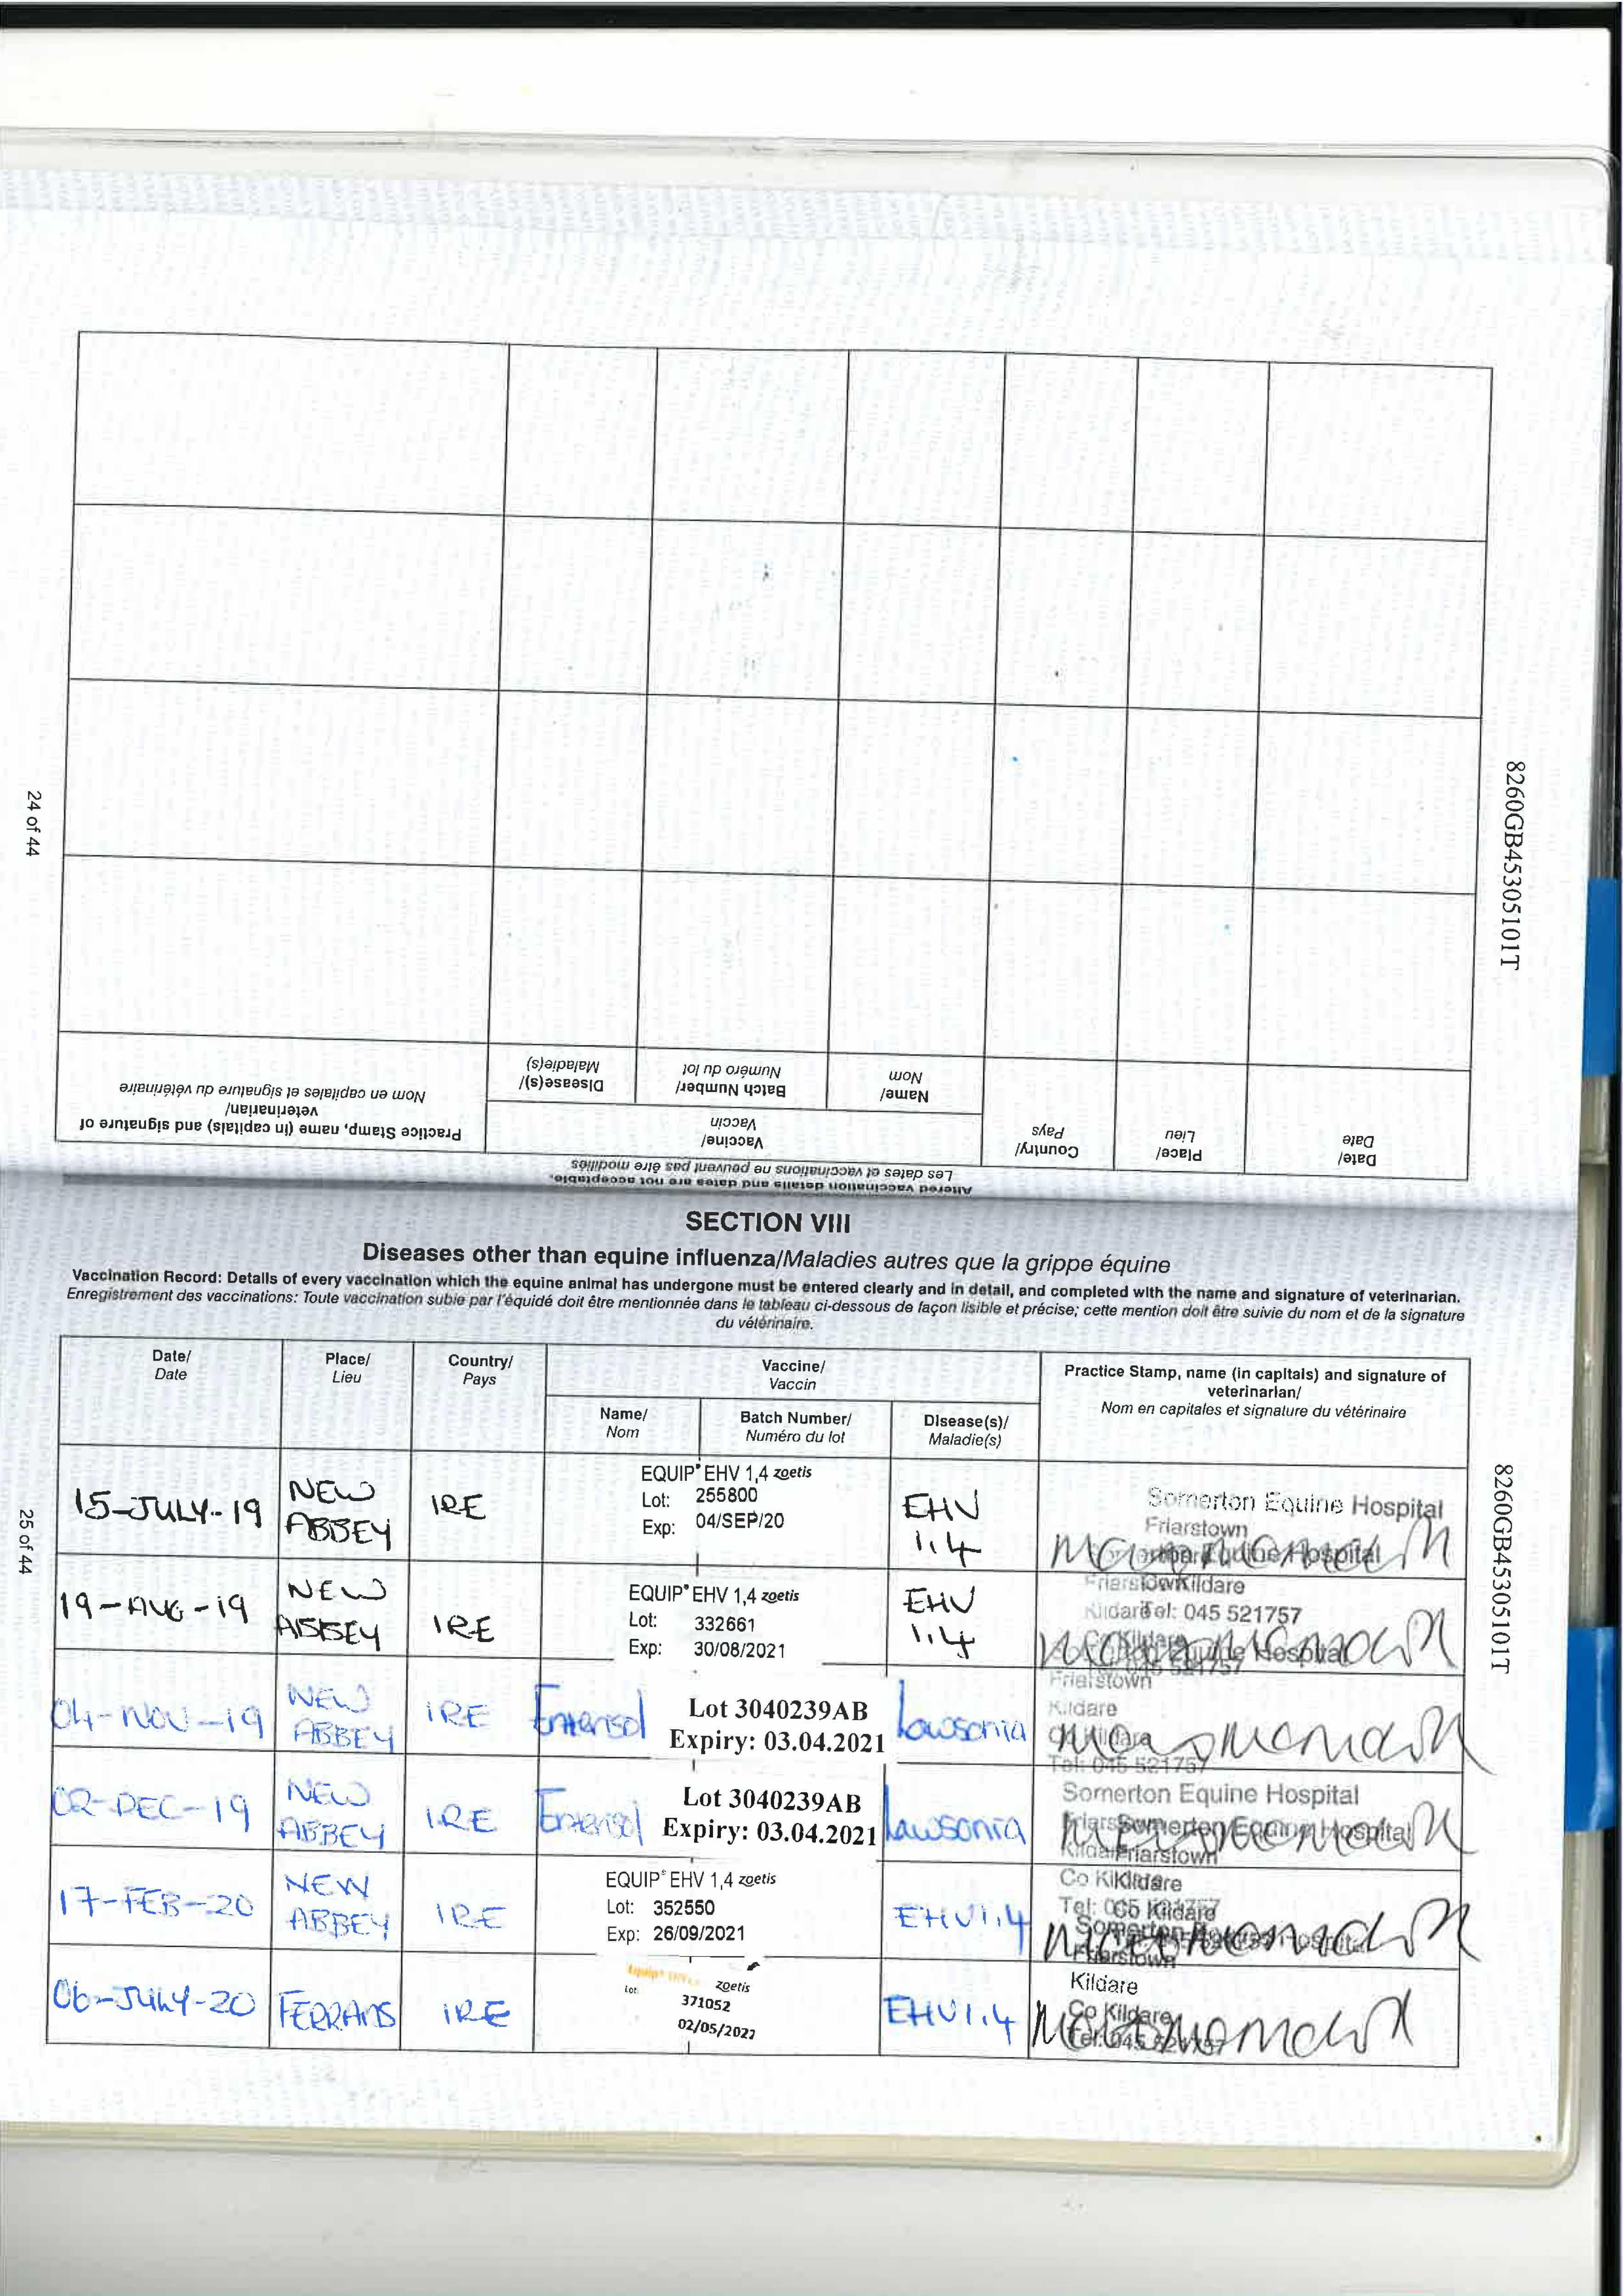 8260GB45305101T
24 of 44
Altered vaccination details and dates are not acceptable.
Les dates et vaccinations ne peuvent pas être modifiées
Date/
Date
Place/
Lieu
Country/
Pays
Vaccine/
Vaccin
Name/
Nom
Batch Number/
Numéro du lot
Disease(s)/
Maladie(s)
Practice Stamp, name (in capitals) and signature of
veterinarian/
Nom en capitales et signature du vétérinaire
SECTION VIII
Diseases other than equine influenza/Maladies autres que la grippe équine
Vaccination Record: Details of every vaccination which the equine animal has undergone must be entered clearly and in detail, and completed with the name and signature of veterinarian.
Enregistrement des vaccinations: Toute vaccination subie par l'équidé doit être mentionnée dans le tableau ci-dessous de façon lisible et précise; cette mention doit être suivie du nom et de la signature
du vétérinaire.
Date/
Date
Place/
Lieu
Country/
Pays
Vaccine/
Vaccin
Name/
Nom
Batch Number/
Numéro du lot
Disease(s)/
Maladie(s)
Practice Stamp, name (in capitals) and signature of
veterinarian/
Nom en capitales et signature du vétérinaire
15-JULY-19
NEW
ABBEY
IRE
EQUIP® EHV 1,4 zoetis
Lot: 255800
Exp: 04/SEP/20
EHV
1.4
Somerton Equine Hospital
Friarstown
Equine Hospital
19-AUG-19
NEW
ABBEY
IRE
EQUIP® EHV 1,4 zoetis
Lot: 332661
Exp: 30/08/2021
EHV
1.4
Kildare
Tel: 045 521757
Hospital
04-NOV-19
NEW
ABBEY
IRE
Enterisol
Lot 3040239AB
Expiry: 03.04.2021
Lawsonia
Friarstown
Kildare
Tel: 045 521757
02-DEC-19
NEW
ABBEY
IRE
Enterisol
Lot 3040239AB
Expiry: 03.04.2021
Lawsonia
Somerton Equine Hospital
Somerton Equine Hospital
Friarstown
17-FEB-20
NEW
ABBEY
IRE
EQUIP® EHV 1,4 zoetis
Lot: 352550
Exp: 26/09/2021
EHV1.4
Kildare
Co Kildare
Friarstown
06-JULY-20
FERRANS
IRE
Equip® EHV1,4 zoetis
Lot: 371052
02/05/2022
EHV1.4
Kildare
Co Kildare
25 of 44
8260GB45305101T